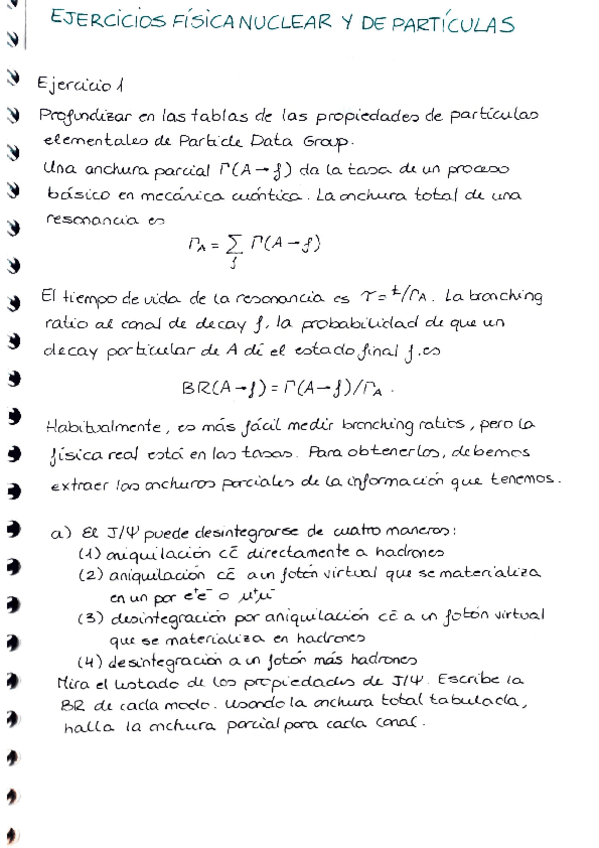 EJERCICIOS FÍSICA NUCLEAR Y DE PARTÍCULAS
Ejercicio 1
Profundizar en las tablas de las propiedades de partículas
elementales de Particle Data Group.
Una anchura parcial Γ(A→f) da la tasa de un proceso
básico en mecánica cuántica. La anchura total de una
resonancia es
Γ_A = Σ_f Γ(A→f)
El tiempo de vida de la resonancia es τ = ħ/Γ_A. La branching
ratio al canal de decay f, la probabilidad de que un
decay particular de A dé el estado final f, es
BR(A→f) = Γ(A→f)/Γ_A.
Habitualmente, es más fácil medir branching ratios, pero la
física real está en las tasas. Para obtenerlos, debemos
extraer las anchuras parciales de la información que tenemos.
a) El J/Ψ puede desintegrarse de cuatro maneras:
(1) aniquilación cc̄ directamente a hadrones
(2) aniquilación cc̄ a un fotón virtual que se materializa
en un par e⁺e⁻ o μ⁺μ⁻
(3) desintegración por aniquilación cc̄ a un fotón virtual
que se materializa en hadrones
(4) desintegración a un fotón más hadrones
Mira el listado de las propiedades de J/Ψ. Escribe la
BR de cada modo. Usando la anchura total tabulada,
halla la anchura parcial para cada canal.